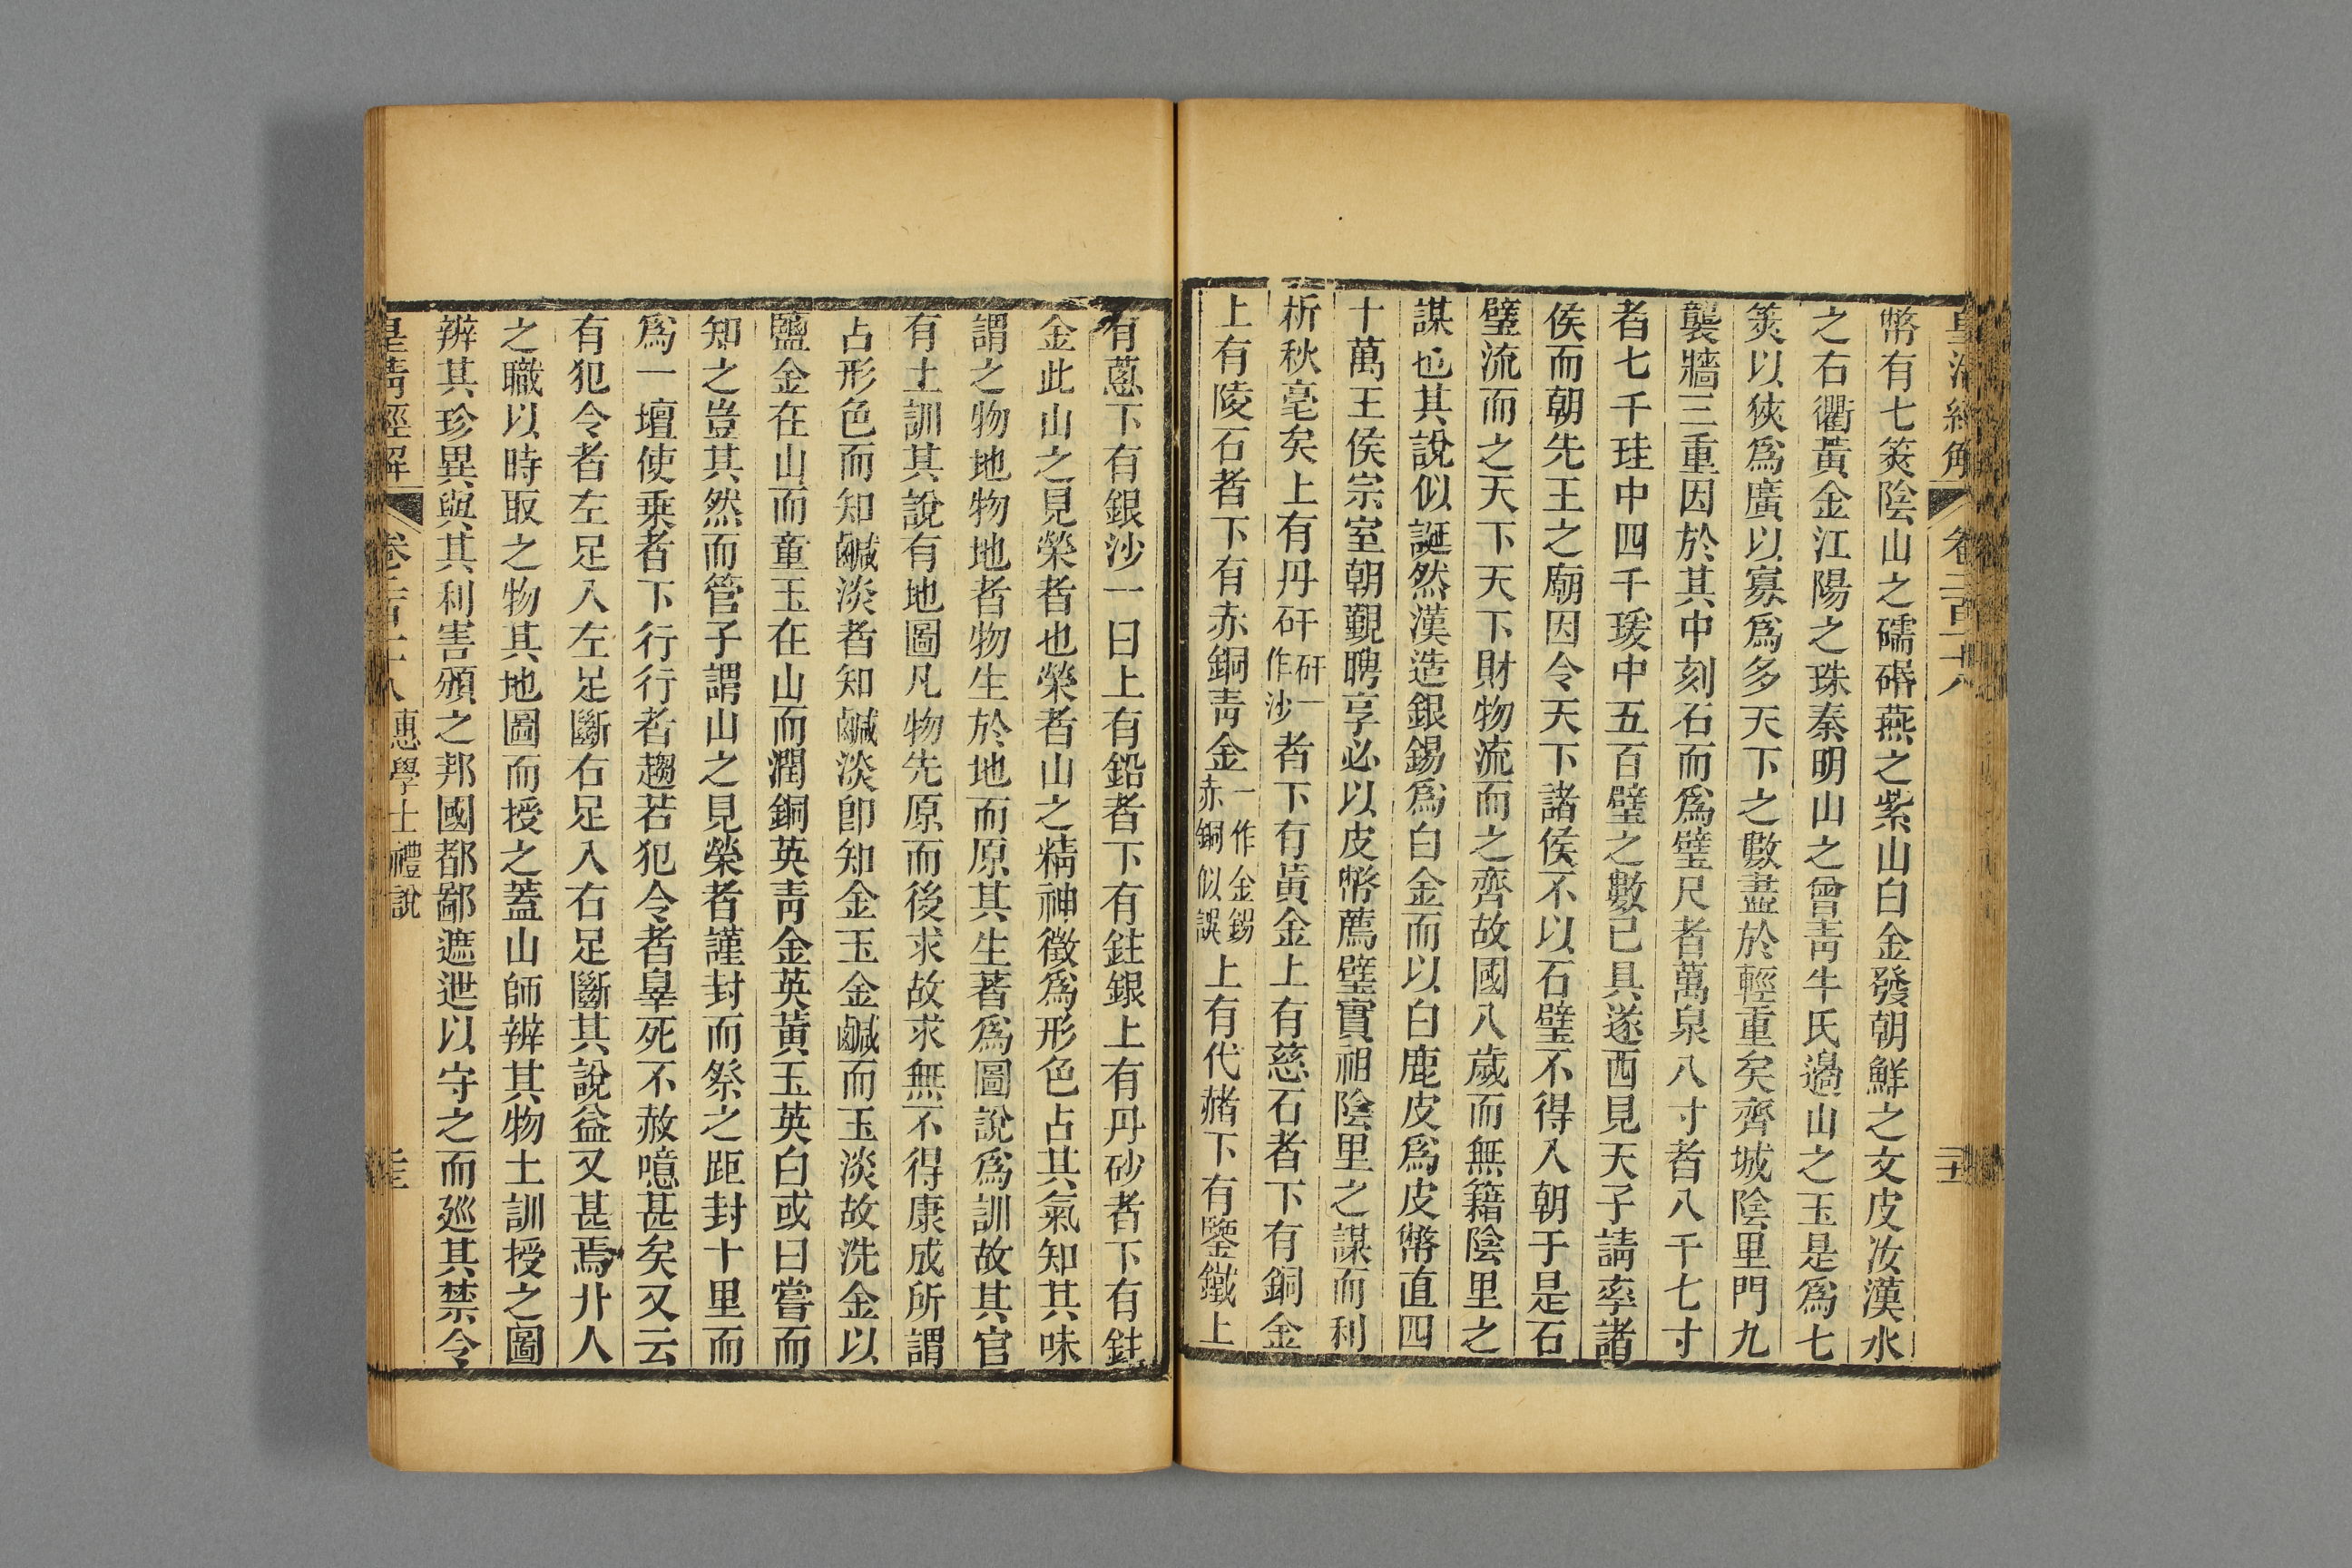 皇清經解 卷二百十八 二十
幣有七筴陰山之礝碈燕之紫山白金發朝鮮之文皮汝漢水
之右衢黃金江陽之珠秦明山之曾靑牛氏邊山之玉是爲七
筴以狹爲廣以寡爲多天下之數盡於輕重矣齊城陰里門九
襲牆三重因於其中刻石而爲璧尺者萬泉八寸者八千七寸
者七千珪中四千瑗中五百璧之數已具遂西見天子請率諸
侯而朝先王之廟因令天下諸侯不以石璧不得入朝于是石
璧流而之天下天下財物流而之齊故國八歲而無籍陰里之
謀也其說似誕然漢造銀錫爲白金而以白鹿皮爲皮幣直四
十萬王侯宗室朝覲聘享必以皮幣薦璧實祖陰里之謀而利
析秋毫矣上有丹矸矸一作沙者下有黃金上有慈石者下有銅金
上有陵石者下有赤銅靑金一作金錫赤銅似誤上有代赭下有鑒鐵上
有蔥下有銀沙一曰上有鉛者下有鉒銀上有丹砂者下有鉒
金此山之見榮者也榮者山之精神徵爲形色占其氣知其味
謂之物地物地者物生於地而原其生著爲圖說爲訓故其官
有土訓其說有地圖凡物先原而後求故求無不得康成所謂
占形色而知鹹淡者知鹹淡卽知金玉金鹹而玉淡故洗金以
鹽金在山而童玉在山而潤銅英靑金英黃玉英白或曰嘗而
知之豈其然而管子謂山之見榮者謹封而祭之距封十里而
爲一壇使乘者下行行者趨若犯令者辠死不赦噫甚矣又云
有犯令者左足入左足斷右足入右足斷其說益又甚焉廾人
之職以時取之物其地圖而授之蓋山師辨其物土訓授之圖
辨其珍異與其利害頒之邦國都鄙遮迣以守之而巡其禁令
皇清經解 卷二百十八 惠學士禮說